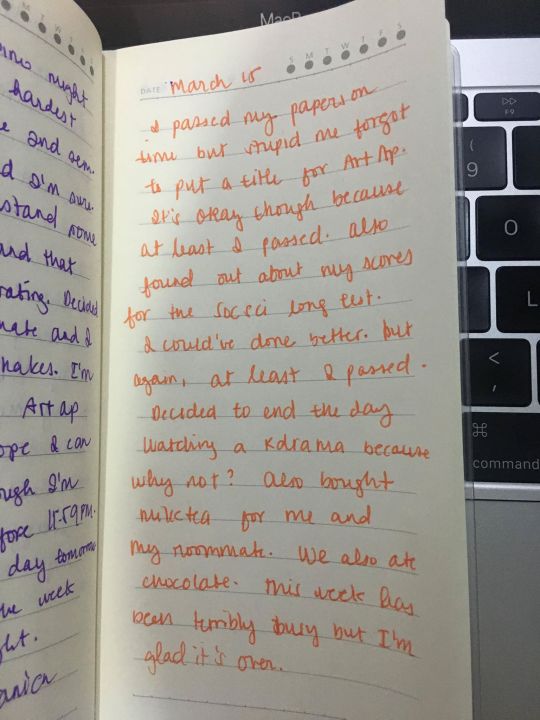 MacB
S M T W T F S
DATE March 15
I passed my papers on
time but stupid me forgot
to put a title for Art Ap.
It's okay though because
at least I passed. Also
found out about my scores
for the Soc sci long test.
I could've done better. but
again, at least I passed.
Decided to end the day
watching a Kdrama because
why not? Also bought
milktea for me and
my roommate. We also ate
chocolate. This week has
been terribly busy but I'm
glad it's over.
M T W T F S
might
hardest
and sem.
I'm sure.
stand some
and that
rating. Decided
mate and I
makes. I'm
Art ap
I can
I'm
fore 11:59 PM.
day tomorrow
week
ght.
F9
( 9
O
L
< ,
⌘
command